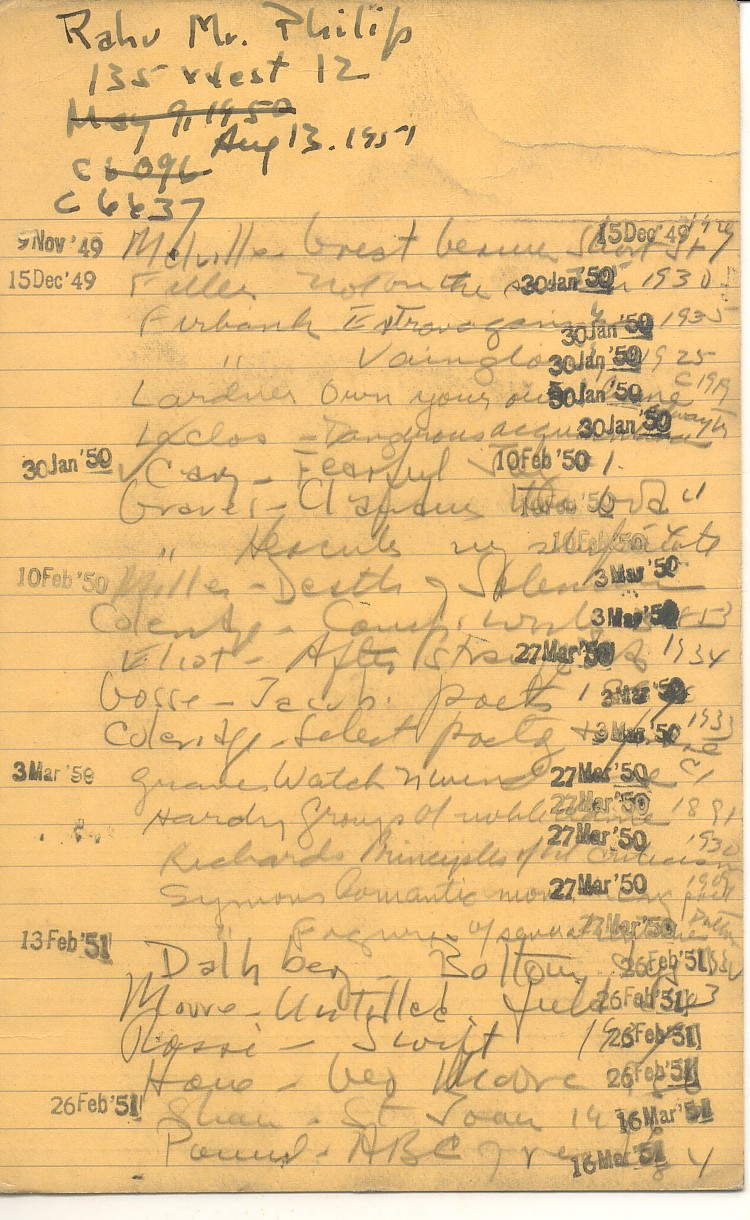 Rahv Mr. Philip
135 West 12
May 9, 1950
Aug 13. 1951
C 6096
C 6637
9 Nov '49 Melville Great 15 Dec '49
15 Dec '49 Fuller Not on the 30 Jan '50 1930
Firbank Extravaganzas 30 Jan '50 1935
" Vainglory 30 Jan '50 1925
Lardner Own your own home 30 Jan '50 C 1919
Laclos - Dangerous acquaintances 30 Jan '50
30 Jan '50 Cary - Fearful 10 Feb '50
Graves - 10 Feb '50
" Hercules my shipmate 10 Feb '50
10 Feb '50 Miller - Death of Salesman 3 Mar '50
Coleridge - Comp. works 3 Mar '50 1853
Eliot - After Strange Gods 27 Mar '50 1934
Gosse - Jacob. poets 3 Mar '50
Coleridge - Select poetry + prose 3 Mar '50 1933
3 Mar '50 Graves Watch N wind 27 Mar '50
Hardy Group of noble dames 27 Mar '50 1891
Richards Principles of lit criticism 27 Mar '50
Symons Romantic movement 27 Mar '50
" Figures of several centuries 27 Mar '50
13 Feb '51 Dahlberg - Bottom Dogs 26 Feb '51
Moore - Untilled field 26 Feb '51
Rossi - Swift 26 Feb '51
Hone - Geo Moore 26 Feb '51
26 Feb '51 Shaw - St Joan 16 Mar '51
Pound - ABC of 16 Mar '51